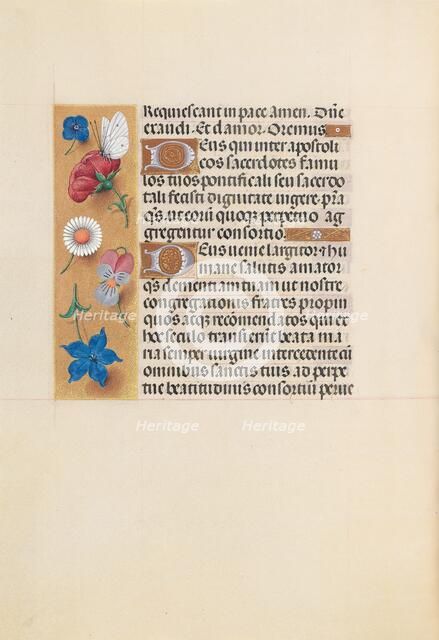 Requiescant in pace amen. Dñe
exaudi. Et clamor. Oremus
Deus qui inter apostoli
cos sacerdotes famu
los tuos pontificali seu sacerdo
tali fecisti dignitate vigere p̃ra
q̃s. ut eorũ quoq̃ perpetuo ag
gregentur consortio.
Deus venie largitor ⁊ hu
mane salutis amator
q̃s clementiam tuam ut nostre
congregationis fratres propin
quos acq̃ recõmendatos qui ex
hoc seculo transierũt beata ma
ria semper virgine intercedente cũ
omnibus sanctis tuis ad perpe
tue beatitudinis consortiũ perve
Heritage
Heritage
Heritage
Heritage
Heritage
Heritage